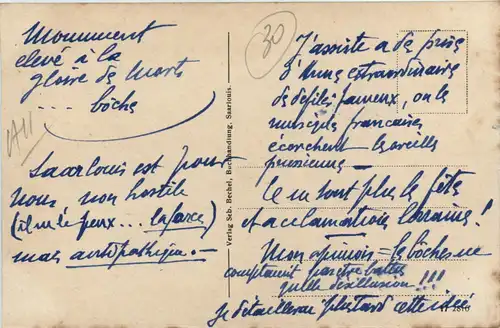 Monument
elevé à la
gloire de Morts
... bôche
All
Saarlouis est pour
nous, non hostile
(il ne le peux... la force)
mais antipathique. -
30
Verlag Seb. Bechel, Buchhandlung, Saarlouis.
J'assiste a de prise
d'Armes extraordinaires
de défilés fameux, ou les
musiques françaises
écorchent les oreilles
prussiennes -
Ce ne sont plus les fêtes
et acclamations lorraines!
Mon opinion = les bôches ne
comptaient pas etre battus
quelle désillusion !!!
Je détaillerai plus tard cette idée